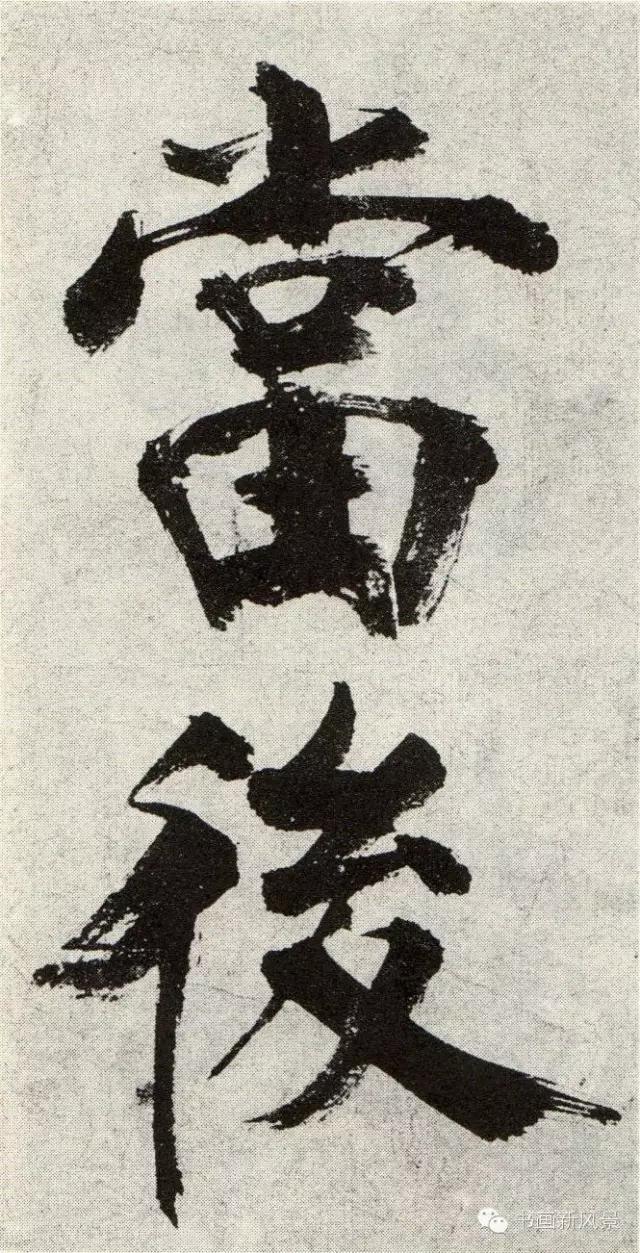 當
後
书画新风景